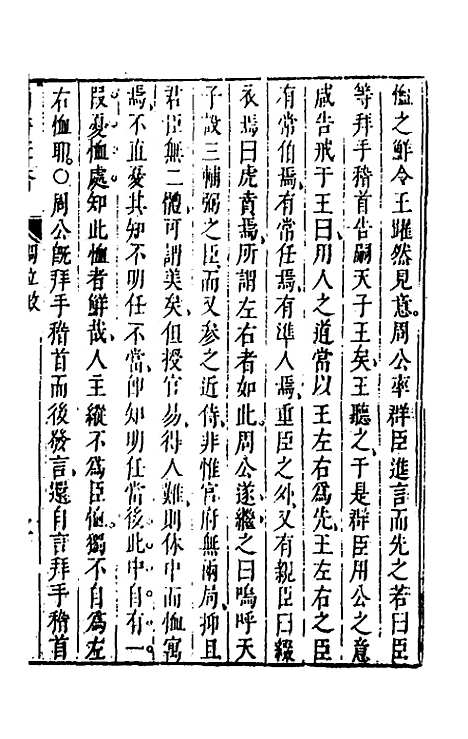 恤之鮮令王躍然見意周公率群臣進言而先之若曰臣
等拜手稽首告嗣天子王矣王聽之于是群臣用公之意
咸告戒于王曰用人之道當以王左右爲先王左右之臣
有常伯焉有常任焉有準人焉重臣之外又有親臣曰綴
衣焉曰虎賁焉所謂左右者如此周公遂繼之曰嗚呼天
子設三輔弼之臣而又參之近侍非惟官府無兩局抑且
君臣無二體可謂美矣但授官易得人難則休中而恤寓
焉不直憂其知不明任不當卽知明任當後此中自有一
叚憂恤處知此恤者鮮哉人主縱不爲臣恤獨不自爲左
右恤耶○周公旣拜手稽首而後發言還自言拜手稽首